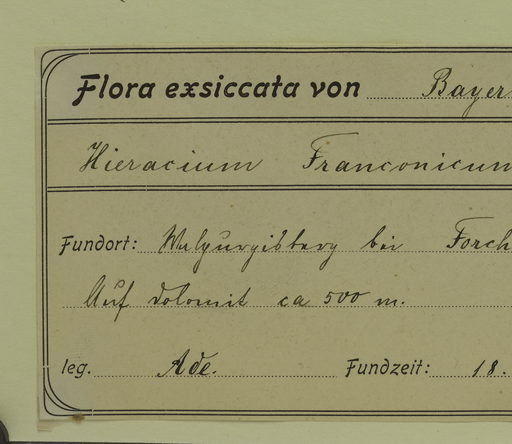 Flora exsiccata von Bayer
Hieracium Franconicum
Fundort: Walpurgisberg bei Forch
Auf Dolomit ca 500 m.
leg. Ade. Fundzeit: 18.